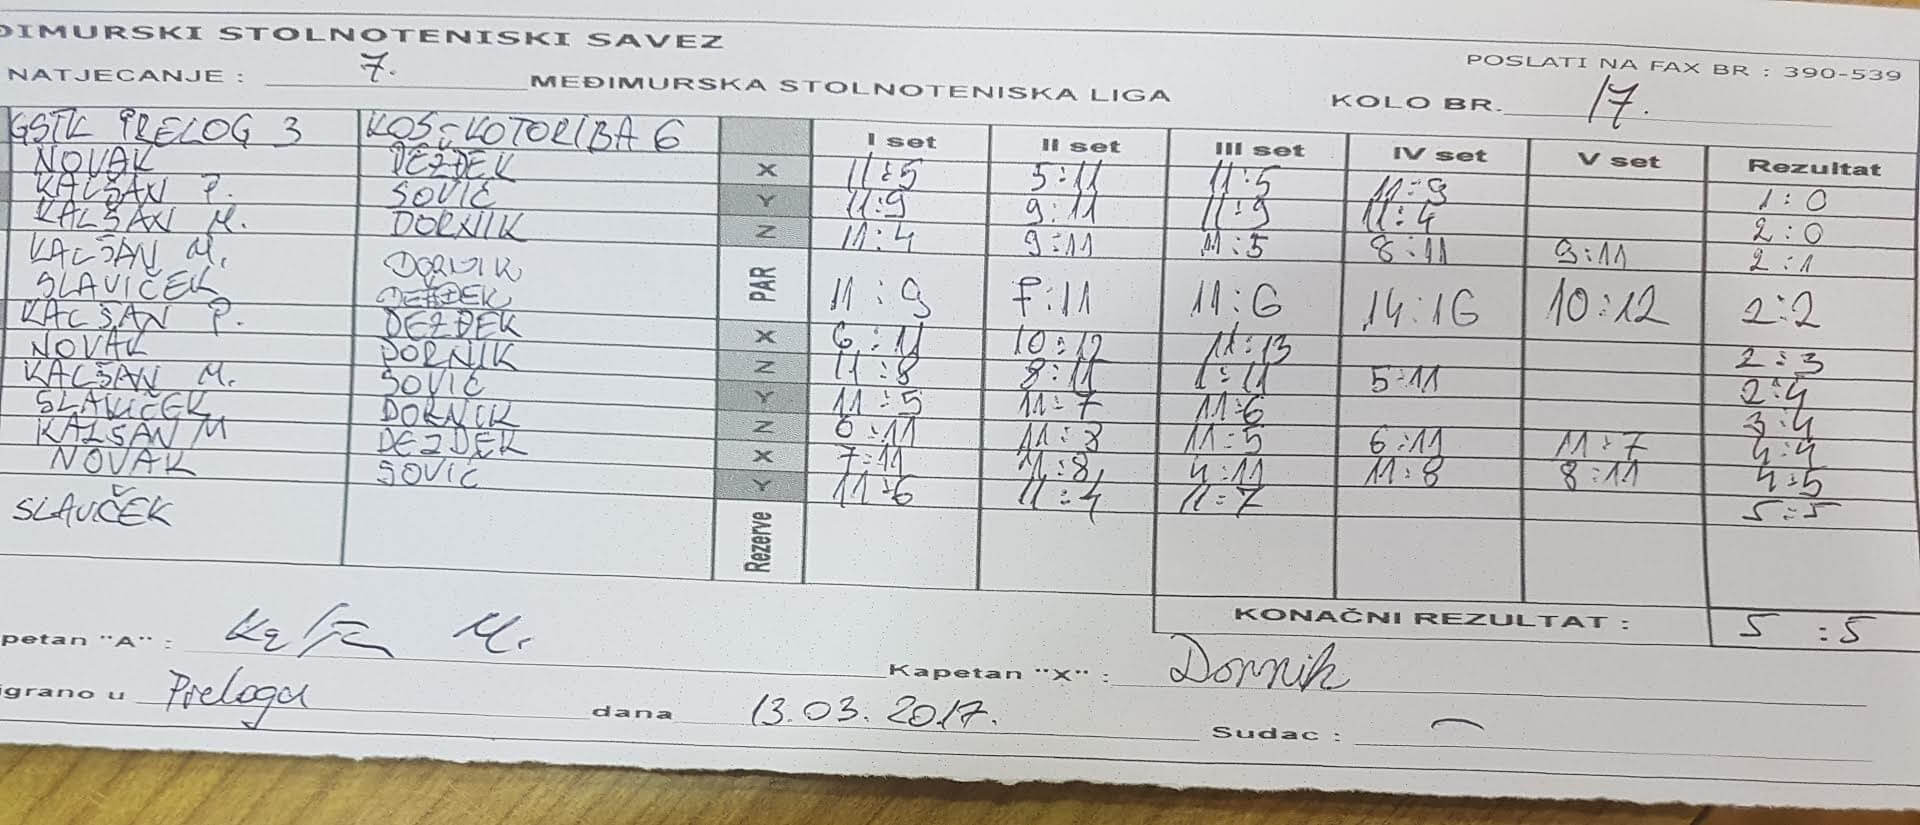 ĐIMURSKI STOLNOTENISKI SAVEZ
POSLATI NA FAX BR : 390-539
NATJECANJE : 7. MEĐIMURSKA STOLNOTENISKA LIGA KOLO BR. 17.
GSTK PRELOG 3 KOS-KOTORIBA 6 I set II set III set IV set V set Rezultat
NOVAK DEŽĐEK X 11:5 5:11 11:5 11:9 1:0
KALŠAN P. SOVIĆ Y 11:9 9:11 11:9 11:4 2:0
KALŠAN M. DORNIK Z 11:4 9:11 11:5 8:11 9:11 2:1
KALŠAN M. DORNIK
SLAVIČEK DEŽĐEK PAR 11:9 7:11 11:6 14:16 10:12 2:2
KALŠAN P. DEŽĐEK X 6:11 10:12 11:13 2:3
NOVAK DORNIK Z 11:8 8:11 1:11 5:11 2:4
KALŠAN M. SOVIĆ Y 11:5 11:7 11:6 3:4
SLAVIČEK DORNIK Z 6:11 11:8 11:5 6:11 11:7 4:4
KALŠAN M DEŽĐEK X 7:11 11:8 4:11 11:8 8:11 4:5
NOVAK SOVIĆ Y 11:6 11:4 11:7 5:5
SLAVČEK Rezerve
KONAČNI REZULTAT : 5:5
petan "A" : M. Kapetan "X" : Dornik
igrano u Prelogu dana 13.03.2017. Sudac : —